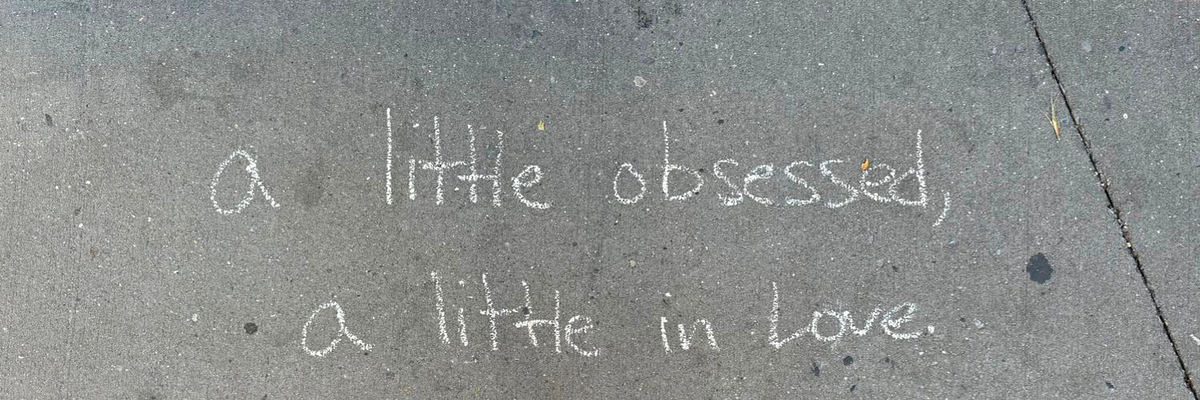 a little obsessed,
a little in Love.